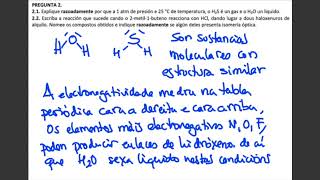 PREGUNTA 2.
2.1. Explique razoadamente por que a 1 atm de presión e 25 °C de temperatura, o H₂S é un gas e o H₂O un líquido.
2.2. Escriba a reacción que sucede cando o 2-metil-1-buteno reacciona con HCl, dando lugar a dous haloxenuros de
alquilo. Nomee os compostos obtidos e indique razoadamente se algún deles presenta isomería óptica.
O
H H
S
H H
Son sustancias
moleculares con
estructura similar
A electronegatividade medra na tabla
periódica cara a dereita e cara arriba,
Os elementos máis electronegativos N, O, F,
poden producir enlaces de hidróxeno de aí
que H₂O sexa líquido nestas condicións